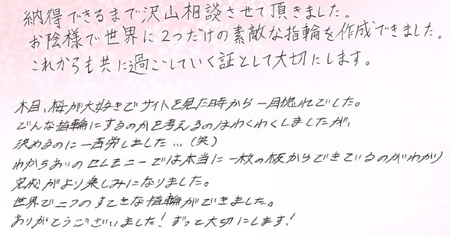 納得できるまで沢山相談させて頂きました。
お陰様で世界に2つだけの素敵な指輪を作成できました。
これからも共に過ごしていく証として大切にします。
木目、桜が大好きでサイトを見た時から一目惚れでした。
どんな指輪にするのかを考えるのはわくわくしましたが、
決めるのに一苦労しました…(笑)
わかちあいのセレモニーでは本当に一枚の板からできているのがわかり
完成がより楽しみになりました。
世界で二つのすてきな指輪ができました。
ありがとうございました!ずっと大切にします!